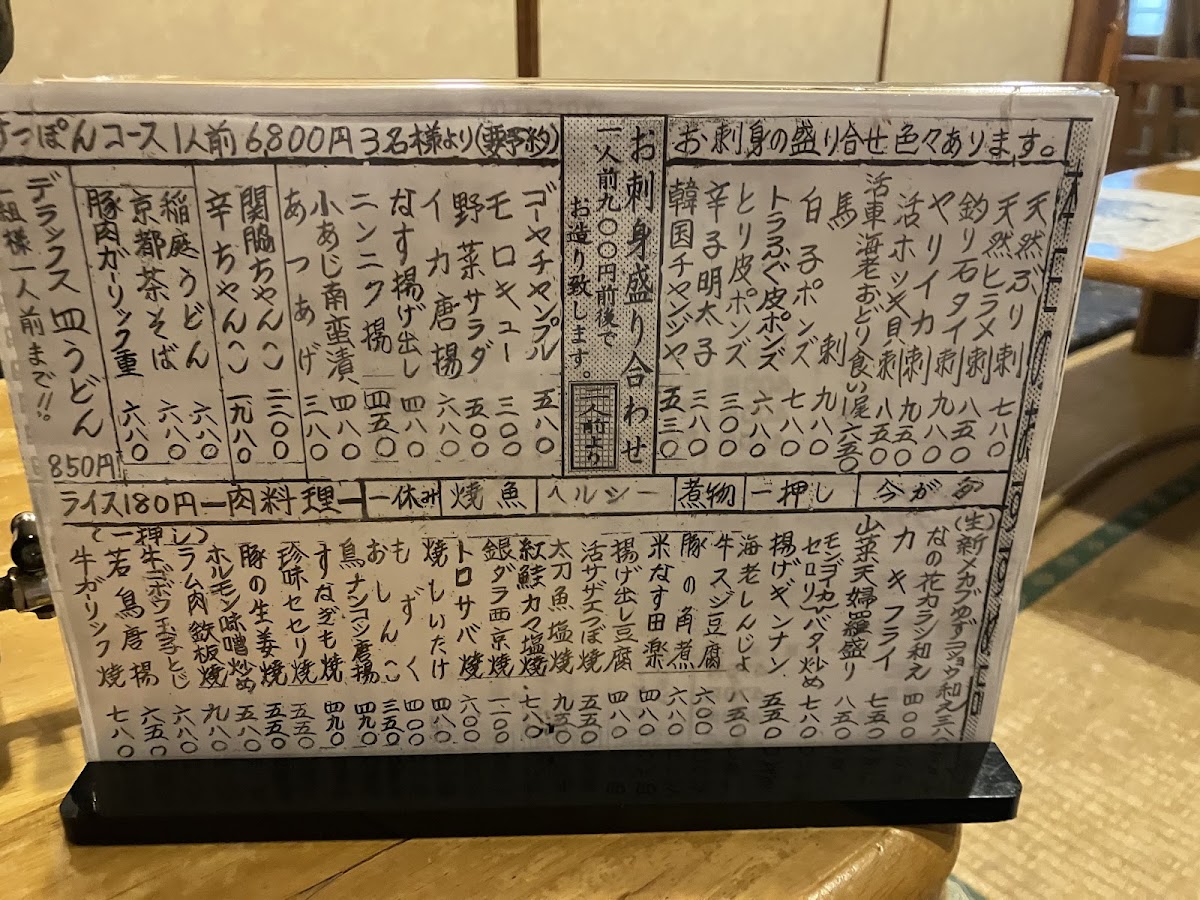 本日のおすすめ
お刺身の盛り合せ色々あります。
天然ぶり刺 七八〇
天然ヒラメ刺 八五〇
釣り石タイ刺 九八〇
ヤリイカ刺 九五〇
活ホッキ貝刺 八五〇
活車海老おどり食い一尾 六五〇
馬刺 九八〇
白子ポンズ 七八〇
トラふぐ皮ポンズ 六八〇
とり皮ポンズ 三〇〇
辛子明太子 三八〇
韓国チャンジャ 五三〇
お刺身盛り合わせ
一人前九〇〇円前後で
お造り致します。
二人前より
すっぽんコース1人前 6,800円 3名様より(要予約)
ゴーヤチャンプル 五八〇
モロキュー 三〇〇
野菜サラダ 五〇〇
イカ唐揚 六八〇
なす揚げ出し 四八〇
ニンニク揚 四五〇
小あじ南蛮漬 四八〇
あつあげ 三八〇
関脇ちゃんこ 二三〇〇
辛ちゃんこ 一九八〇
稲庭うどん 六八〇
京都茶そば 六八〇
豚肉ガーリック重 六八〇
デラックス皿うどん
一組様一人前まで!!
850円
今が旬
一押し
煮物
ヘルシー
焼魚
一休み
肉料理
ライス180円
(生)新メカブゆずコショウ和え 三八〇
なの花カラシ和え 四〇〇
カキフライ 七五〇
山菜天婦羅盛り 八五〇
モンゴイカ
セロリ バター炒め 七八〇
揚げギンナン 五五〇
海老しんじょ 八五〇
牛スジ豆腐 六〇〇
豚の角煮 六八〇
米なす田楽 四八〇
揚げ出し豆腐 四八〇
活サザエつぼ焼 五五〇
太刀魚塩焼 九五〇
紅鮭カマ塩焼 七八〇
銀ダラ西京焼 一一〇〇
トロサバ焼 六〇〇
焼しいたけ 四八〇
もずく 四〇〇
おしんこ 三五〇
鳥ナンコツ唐揚 四九〇
すなぎも焼 四九〇
珍味セセリ焼 五五〇
豚の生姜焼 五五〇
ホルモン味噌炒め 五八〇
ラム肉鉄板焼 九八〇
牛ゴボウ玉子とじ 六八〇
若鳥唐揚 六五〇
(一押し)
牛ガーリック焼 七八〇